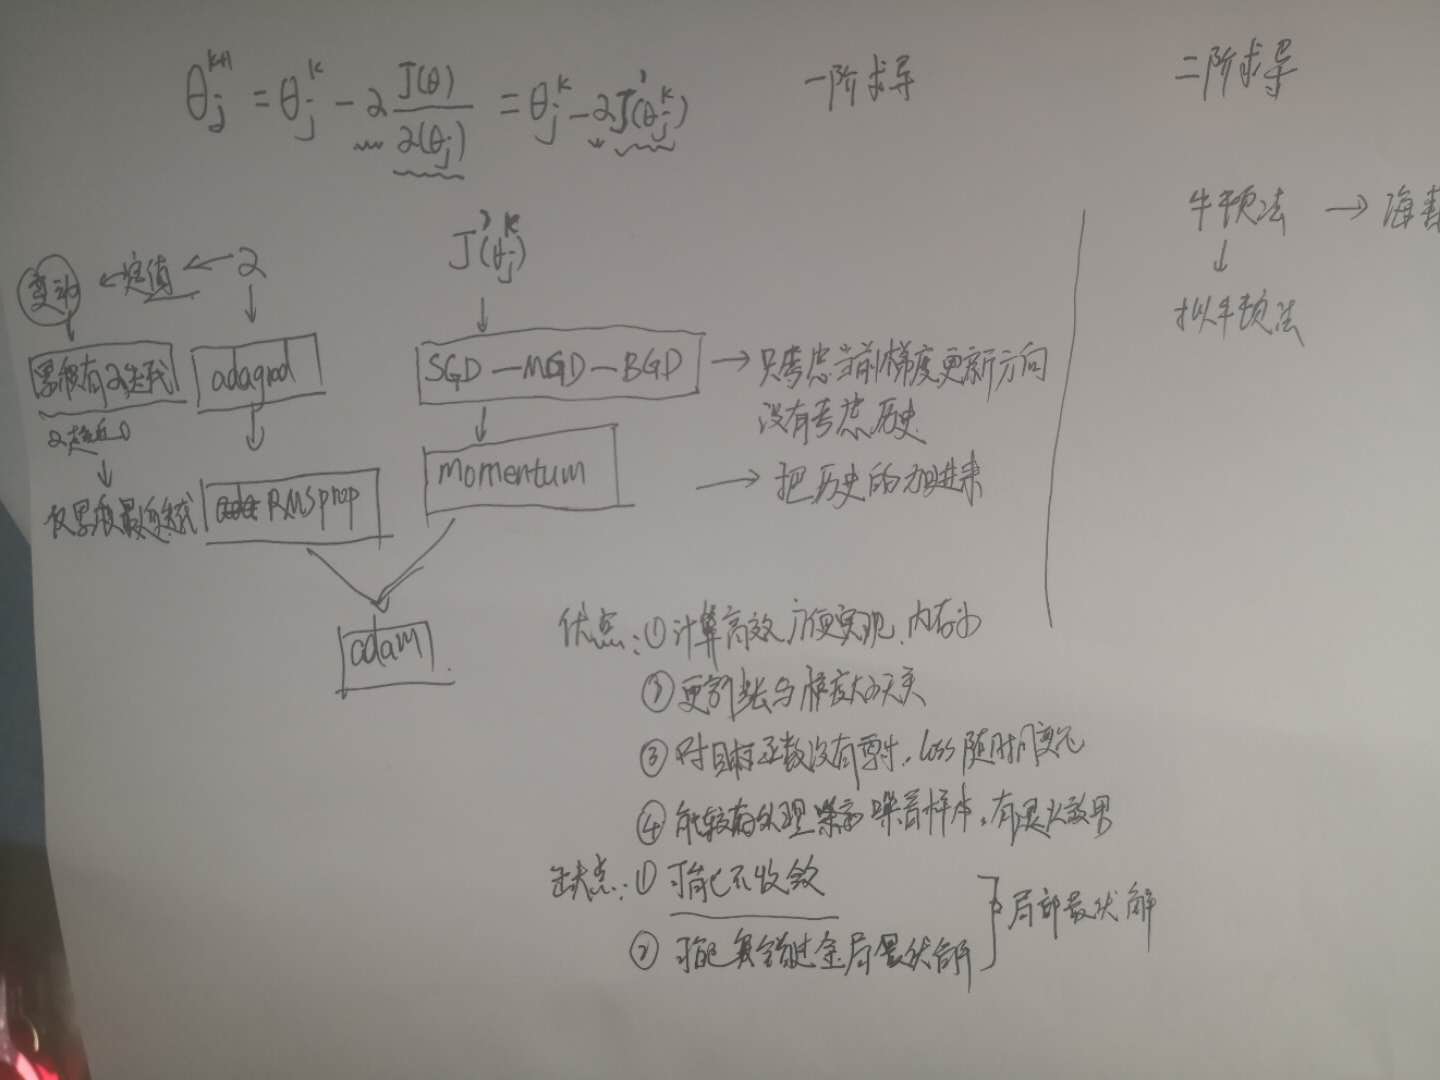 θj^{k+1} = θj^k - 2 J(θ)/2(θj) = θj^k - 2J'(θj^k)
一阶求导
二阶求导
牛顿法 → 海
↓
拟牛顿法
变动 ← 定值 ← 2
J'(θj^k)
累积所有梯度
adagrad
2趋近0
仅累积最近梯度
RMSprop
SGD — MGD — BGD → 只考虑当前梯度更新方向
没有考虑历史
momentum → 把历史的加进来
adam
优点:① 计算高效 方便实现、内存小
② 更新步长与梯度大小无关
③ 对目标函数没有要求,loss随时间变化
④ 能较好处理 噪音样本,有退火效果
缺点:① 可能不收敛
② 可能会错过全局最优解
局部最优解